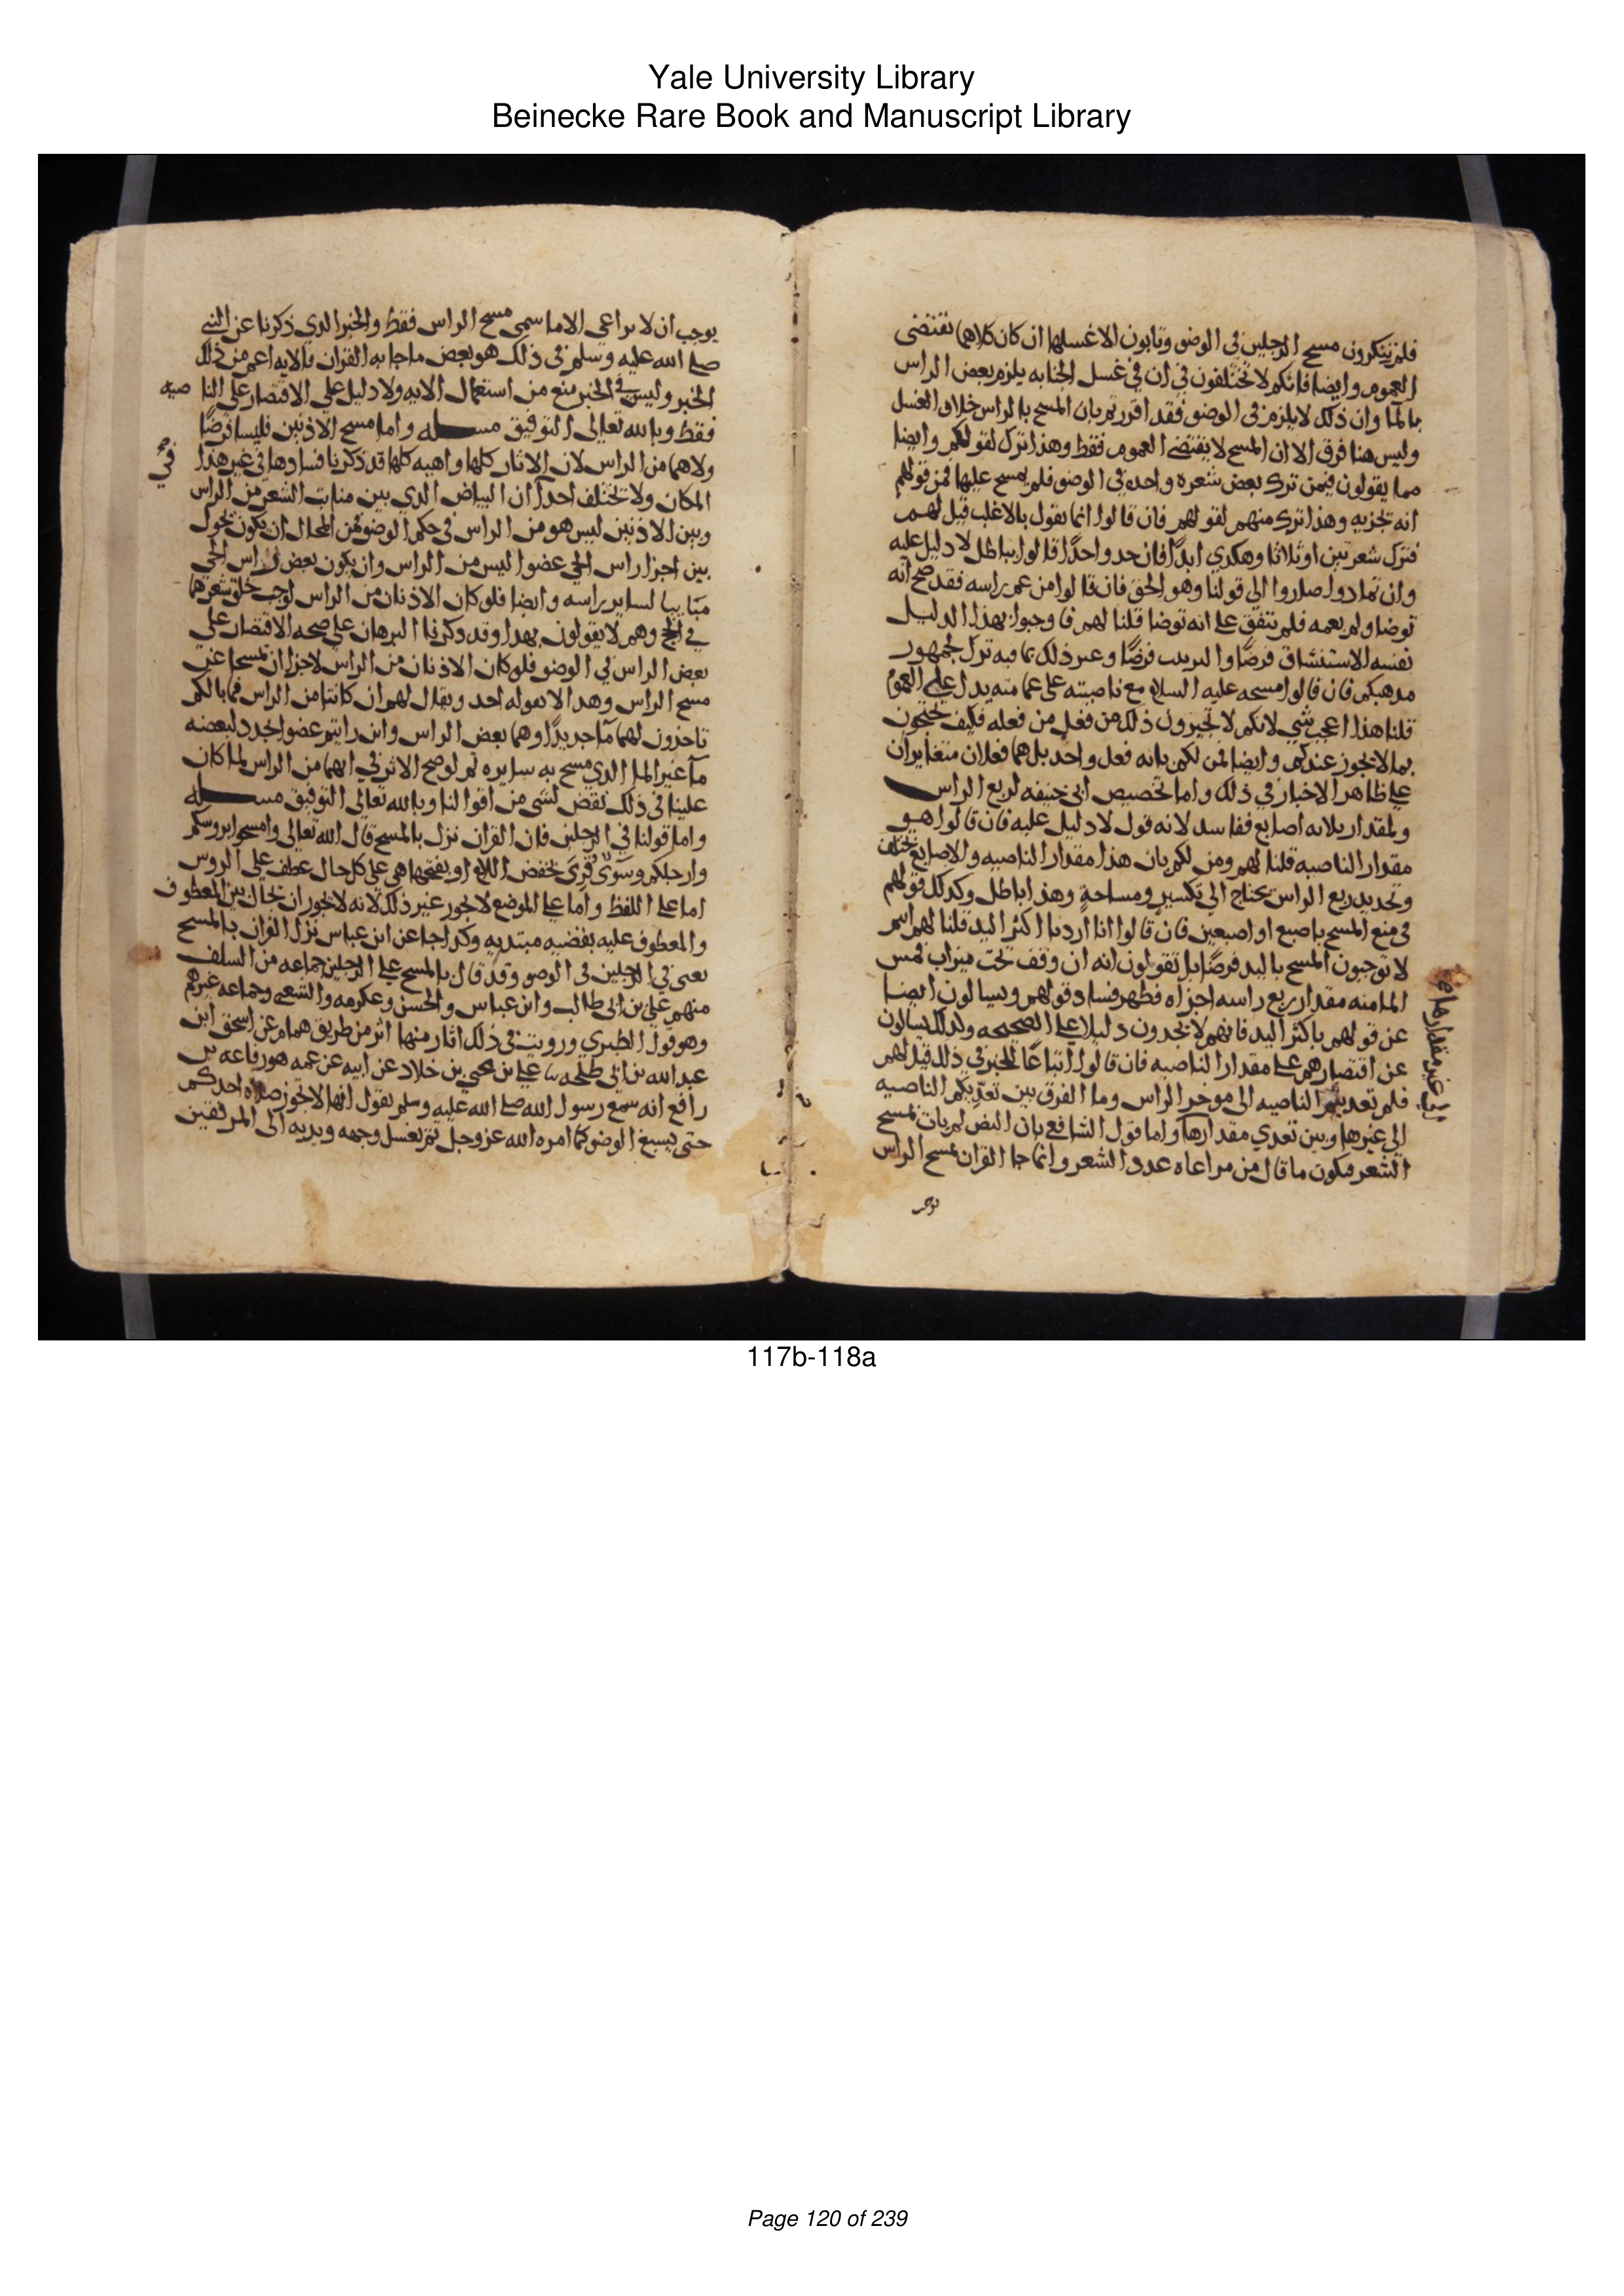 Yale University Library
Beinecke Rare Book and Manuscript Library
فلم تنكرون مسح الرجلين في الوضو وتابون الا غسلهما ان كان كلاهما تقتضي
العموم وايضا فانكم لا تختلفون في ان في غسل الجنابه يلزم بعض الراس
بالما وان ذلك لا يلزم في الوضو فقد اقررتم بان المسح بالراس خلاف الغسل
وليس هنا فرق الا ان المسح لا يقتضي العموم فقط وهذا ترك لقولكم وايضا
مما يقولون فيمن ترك بعض شعره واحده في الوضو فلم يمسح عليها فمن قولهم
انه تجزيه وهذا ترك منهم لقولهم فان قالوا انما نقول بالاغلب قيل لهم
فترك شعرتين او ثلاثا وهكدي ابدًا فان حد واحدًا قالوا بباطل لا دليل عليه
وان تمادوا صاروا الى قولنا وهو الحق فان قالوا من عم راسه فقد صح انه
توضا ولم يعمه فلم نتفق على انه توضا قلنا لهم فاوجبوا بهذا الدليل
نفسه الاستنشاق فرضًا والترتيب فرضًا وغير ذلك مما فيه ترك لجمهور
مدهبكم فان قالوا مسحه عليه السلام مع ناصيته على عمامته يدل على العموم
قلنا هذا اعجب شي لانكم لا تجيزون ذلك من فعل من فعله فكيف تحتجون
بما لا يجوز عندكم وايضا فمن لكم بانه فعل واحد بل هما فعلان متغايران
على ظاهر الاخبار في ذلك واما تخصيص ابي حنيفه لربع الراس
ولمقدار ثلاثه اصابع ففاسد لانه قول لا دليل عليه فان قالوا هو
مقدار الناصيه قلنا لهم ومن لكم بان هذا مقدار الناصيه والاصابع تختلف
وتحديد ربع الراس يحتاج الى تكسير ومساحةٍ وهذا باطل وكدلك قولهم
في منع المسح باصبع او اصبعين فان قالوا انا اردنا اكثر اليد قلنا لهم انتم
لا توجبون المسح باليد فرضًا بل تقولون انه ان وقف تحت ميزاب فمس
الما منه مقدار ربع راسه اجزاه فظهر فساد قولهم ويسالون ايضا
عن قولهم باكثر اليد فانهم لا يجدون دليلا على الصحيحه وكدلك يسالون
عن اقتصارهم على مقدار الناصيه فان قالوا اتباعًا للخبر في ذلك قيل لهم
فلم تعديتم الناصيه الى موخر الراس وما الفرق بين تعدّيكم الناصيه
الى غيرها وبين تعدي مقدارها واما قول الشافعي بان النص لم يات بمسح
الشعر فيكون ما قال من مراعاه عدد الشعر وانما جا القران بمسح الراس
الى غير مقدارها
يوجب ان لا يراعى الا ما سمي مسح الراس فقط والخبر الدي ذكرنا عن النبي
صلى الله عليه وسلم في ذلك هو بعض ما جا به القران فالايه اعم من ذلك
الخبر وليس في الخبر منع من استعمال الايه ولا دليل على الاقتصار على الناصيه
فقط وبالله تعالى التوفيق مسله واما مسح الاذنين فليسا فرضًا
ولا هما من الراس لان الاثار كلها واهيه كلها قد ذكرنا فسادها في غير هذا
المكان ولا يختلف احد في ان البياض الدي بين منابت الشعر من الراس
وبين الاذنين ليس هو من الراس في حكم الوضو فمن المحال ان يكون يحول
بين اجزا راس الحي عضوا ليس من الراس وان يكون بعض راس الحي
مباينا لساير راسه وايضا فلو كان الاذنان من الراس لوجب حلق شعرهما
في الحج وهم لا يقولون بهدا وقد دكرنا البرهان على صحه الاقتصار على
بعض الراس في الوضو فلو كان الاذنان من الراس لاجزا ان تمسحا عن
مسح الراس وهدا لا يقوله احد ويقال لهم ان كانتا من الراس فما بالكم
تاخذون لهما ما جديدًا وهما بعض الراس واين رايتم عضوا يجدد لبعضه
مآ غير الما الدي مسح به سايره ثم لو صح الاثر في انهما من الراس لما كان
علينا في ذلك نقض لشي من اقوالنا وبالله تعالى التوفيق مسله
واما قولنا في الرجلين فان القران نزل بالمسح قال الله تعالى وامسحوا بروسكم
وارجلكم وسوى قرئ بخفض اللام او بفتحها هي على كل حال عطف على الروس
اما على اللفظ واما على الموضع لا يجوز غير ذلك لانه لا يجوز ان يحال بين المعطوف
والمعطوف عليه بقضيه مبتديه وكدا جا عن ابن عباس نزل القران بالمسح
يعني في الرجلين في الوضو وقد قال بالمسح على الرجلين جماعه من السلف
منهم علي بن ابي طالب وابن عباس والحسن وعكرمه والشعبي وجماعه غيرهم
وهو قول الطبري ورويت في ذلك اثار منها اثر من طريق همام عن اسحق ابن
عبدالله بن ابي طلحه نا علي بن يحيى بن خلاد عن ابيه عن عمه هو رفاعه بن
رافع انه سمع رسول الله صلى الله عليه وسلم يقول انها لا تجوز صلاه احدكم
حتى يسبغ الوضو كما امره الله عز وجل ثم يغسل وجهه ويديه الى المرفقين
117b-118a
Page 120 of 239